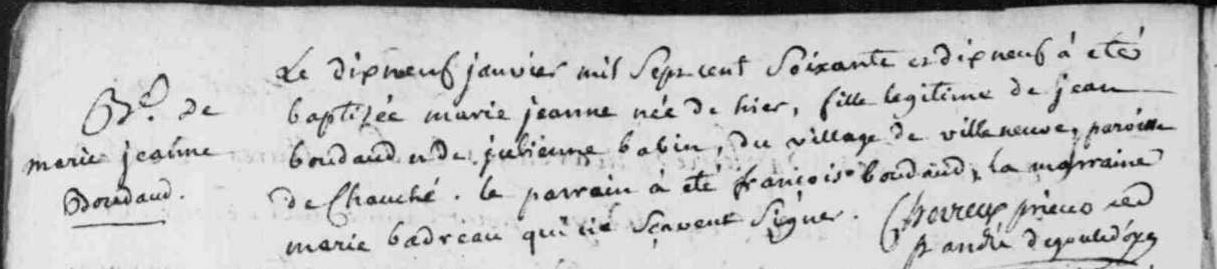 Bt. de
marie jeanne
Boudaud.
Le dixneuf janvier mil Sept cent Soixante et dix neuf à eté
baptizée marie jeanne née de hier, fille legitime de jean
boudaud et de julienne babin, du village de villeneuve, paroisse
de Chauché. le parrain à eté françois boudaud, la marraine
marie badreau qui ne Sçavent Signer. prieur
st andré